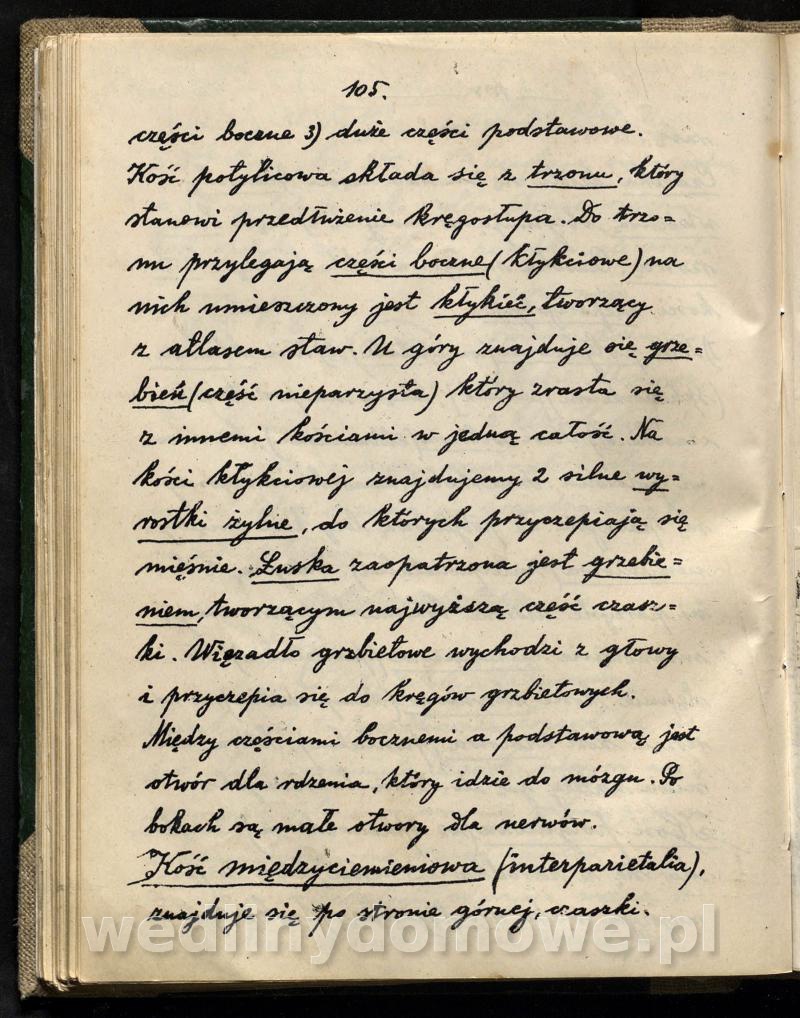 105.
części boczne 3) duże części podstawowe.
Kość potylicowa składa się z trzonu, który
stanowi przedłużenie kręgosłupa. Do trzo=
nu przylegają części boczne (kłykciowe) na
nich umieszczony jest kłykieć, tworzący
z atlasem staw. U góry znajduje się grze=
bień (część nieparzysta) który zrasta się
z innemi kościami w jedną całość. Na
kości kłykciowej znajdujemy 2 silne wy=
rostki żylne, do których przyczepiają się
mięśnie. Łuska zaopatrzona jest grzebie=
niem, tworzącym najwyższą część czasz=
ki. Więzadło grzbietowe wychodzi z głowy
i przyczepia się do kręgów grzbietowych.
Między częściami bocznemi a podstawową jest
otwór dla rdzenia, który idzie do mózgu. Po
bokach są małe otwory dla nerwów.
Kość międzyciemieniowa (interparietalia),
znajduje się po stronie górnej, czaszki.
wedlinydomowe.pl